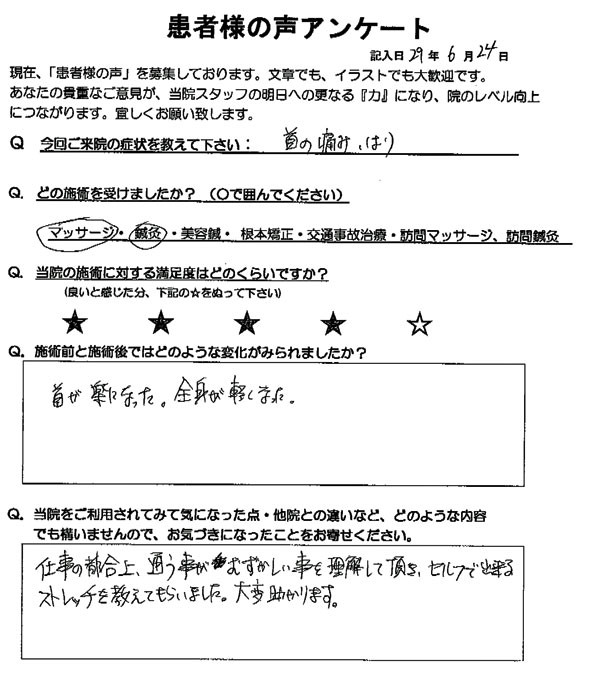 患者様の声アンケート
記入日 29年 6月 24日
現在、「患者様の声」を募集しております。文章でも、イラストでも大歓迎です。
あなたの貴重なご意見が、当院スタッフの明日への更なる『力』になり、院のレベル向上
につながります。宜しくお願い致します。
Q 今回ご来院の症状を教えて下さい： 首の痛み、はり
Q. どの施術を受けましたか？（〇で囲んでください）
マッサージ・鍼灸・美容鍼・根本矯正・交通事故治療・訪問マッサージ、訪問鍼灸
Q. 当院の施術に対する満足度はどのくらいですか？
（良いと感じた分、下記の☆をぬって下さい）
★ ★ ★ ★ ☆
Q. 施術前と施術後ではどのような変化がみられましたか？
首が楽になった。全身が軽くなった。
Q. 当院をご利用されてみて気になった点・他院との違いなど、どのような内容
でも構いませんので、お気づきになったことをお寄せください。
仕事の都合上、通う事がむずかしい事を理解して頂き、セルフで出来る
ストレッチを教えてもらいました。大変助かります。